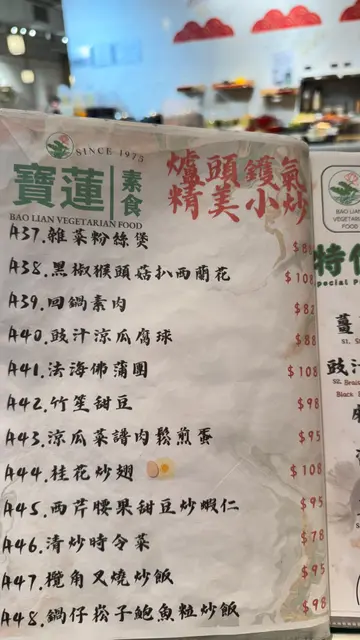 SINCE 1975
寶蓮 素食
BAO LIAN VEGETARIAN FOOD
爐頭鑊氣
精美小炒
A37.雜菜粉絲煲
A38.黑椒猴頭菇扒西蘭花 $108
A39.回鍋素肉 $82
A40.豉汁涼瓜腐球 $88
A41.法海佛蒲團 $108
A42.竹笙甜豆 $98
A43.涼瓜菜譜肉鬆煎蛋 $95
A44.桂花炒翅 $108
A45.西芹腰果甜豆炒蝦仁 $95
A46.清炒時令菜 $78
A47.欖角叉燒炒飯 $95
A48.鍋仔崧子鮑魚粒炒飯 $98
BAO LIAN
VEGETARIAN
FOOD
特
薑
S1.
豉汁
S2.